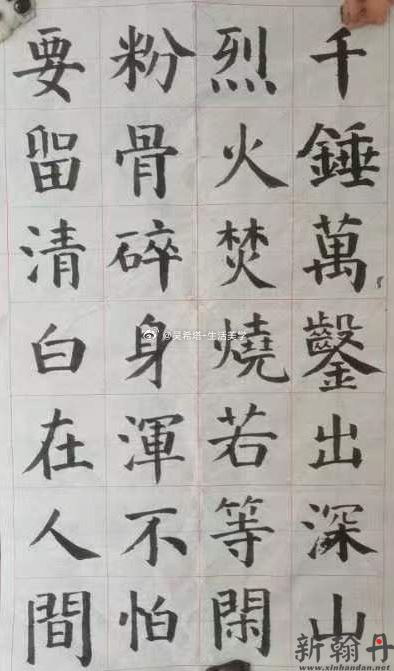 千錘萬鑿出深山
烈火焚燒若等閑
粉骨碎身渾不怕
要留清白在人間
@吴希塔-生活美学
新翰丹
www.xinhandan.net